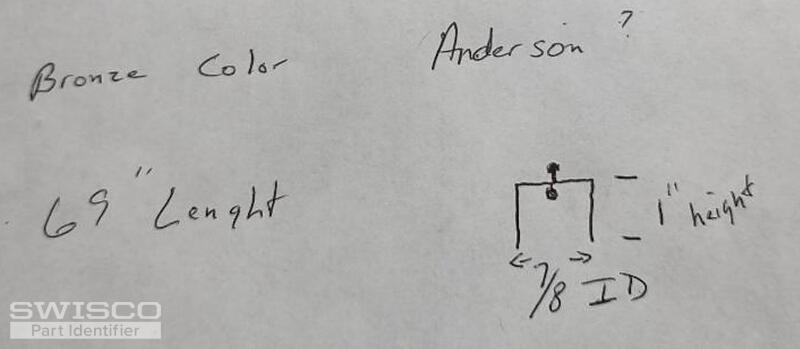 Bronze Color
Anderson ?
69" Lenght
1" height
7/8 ID
SWISCO
Part Identifier